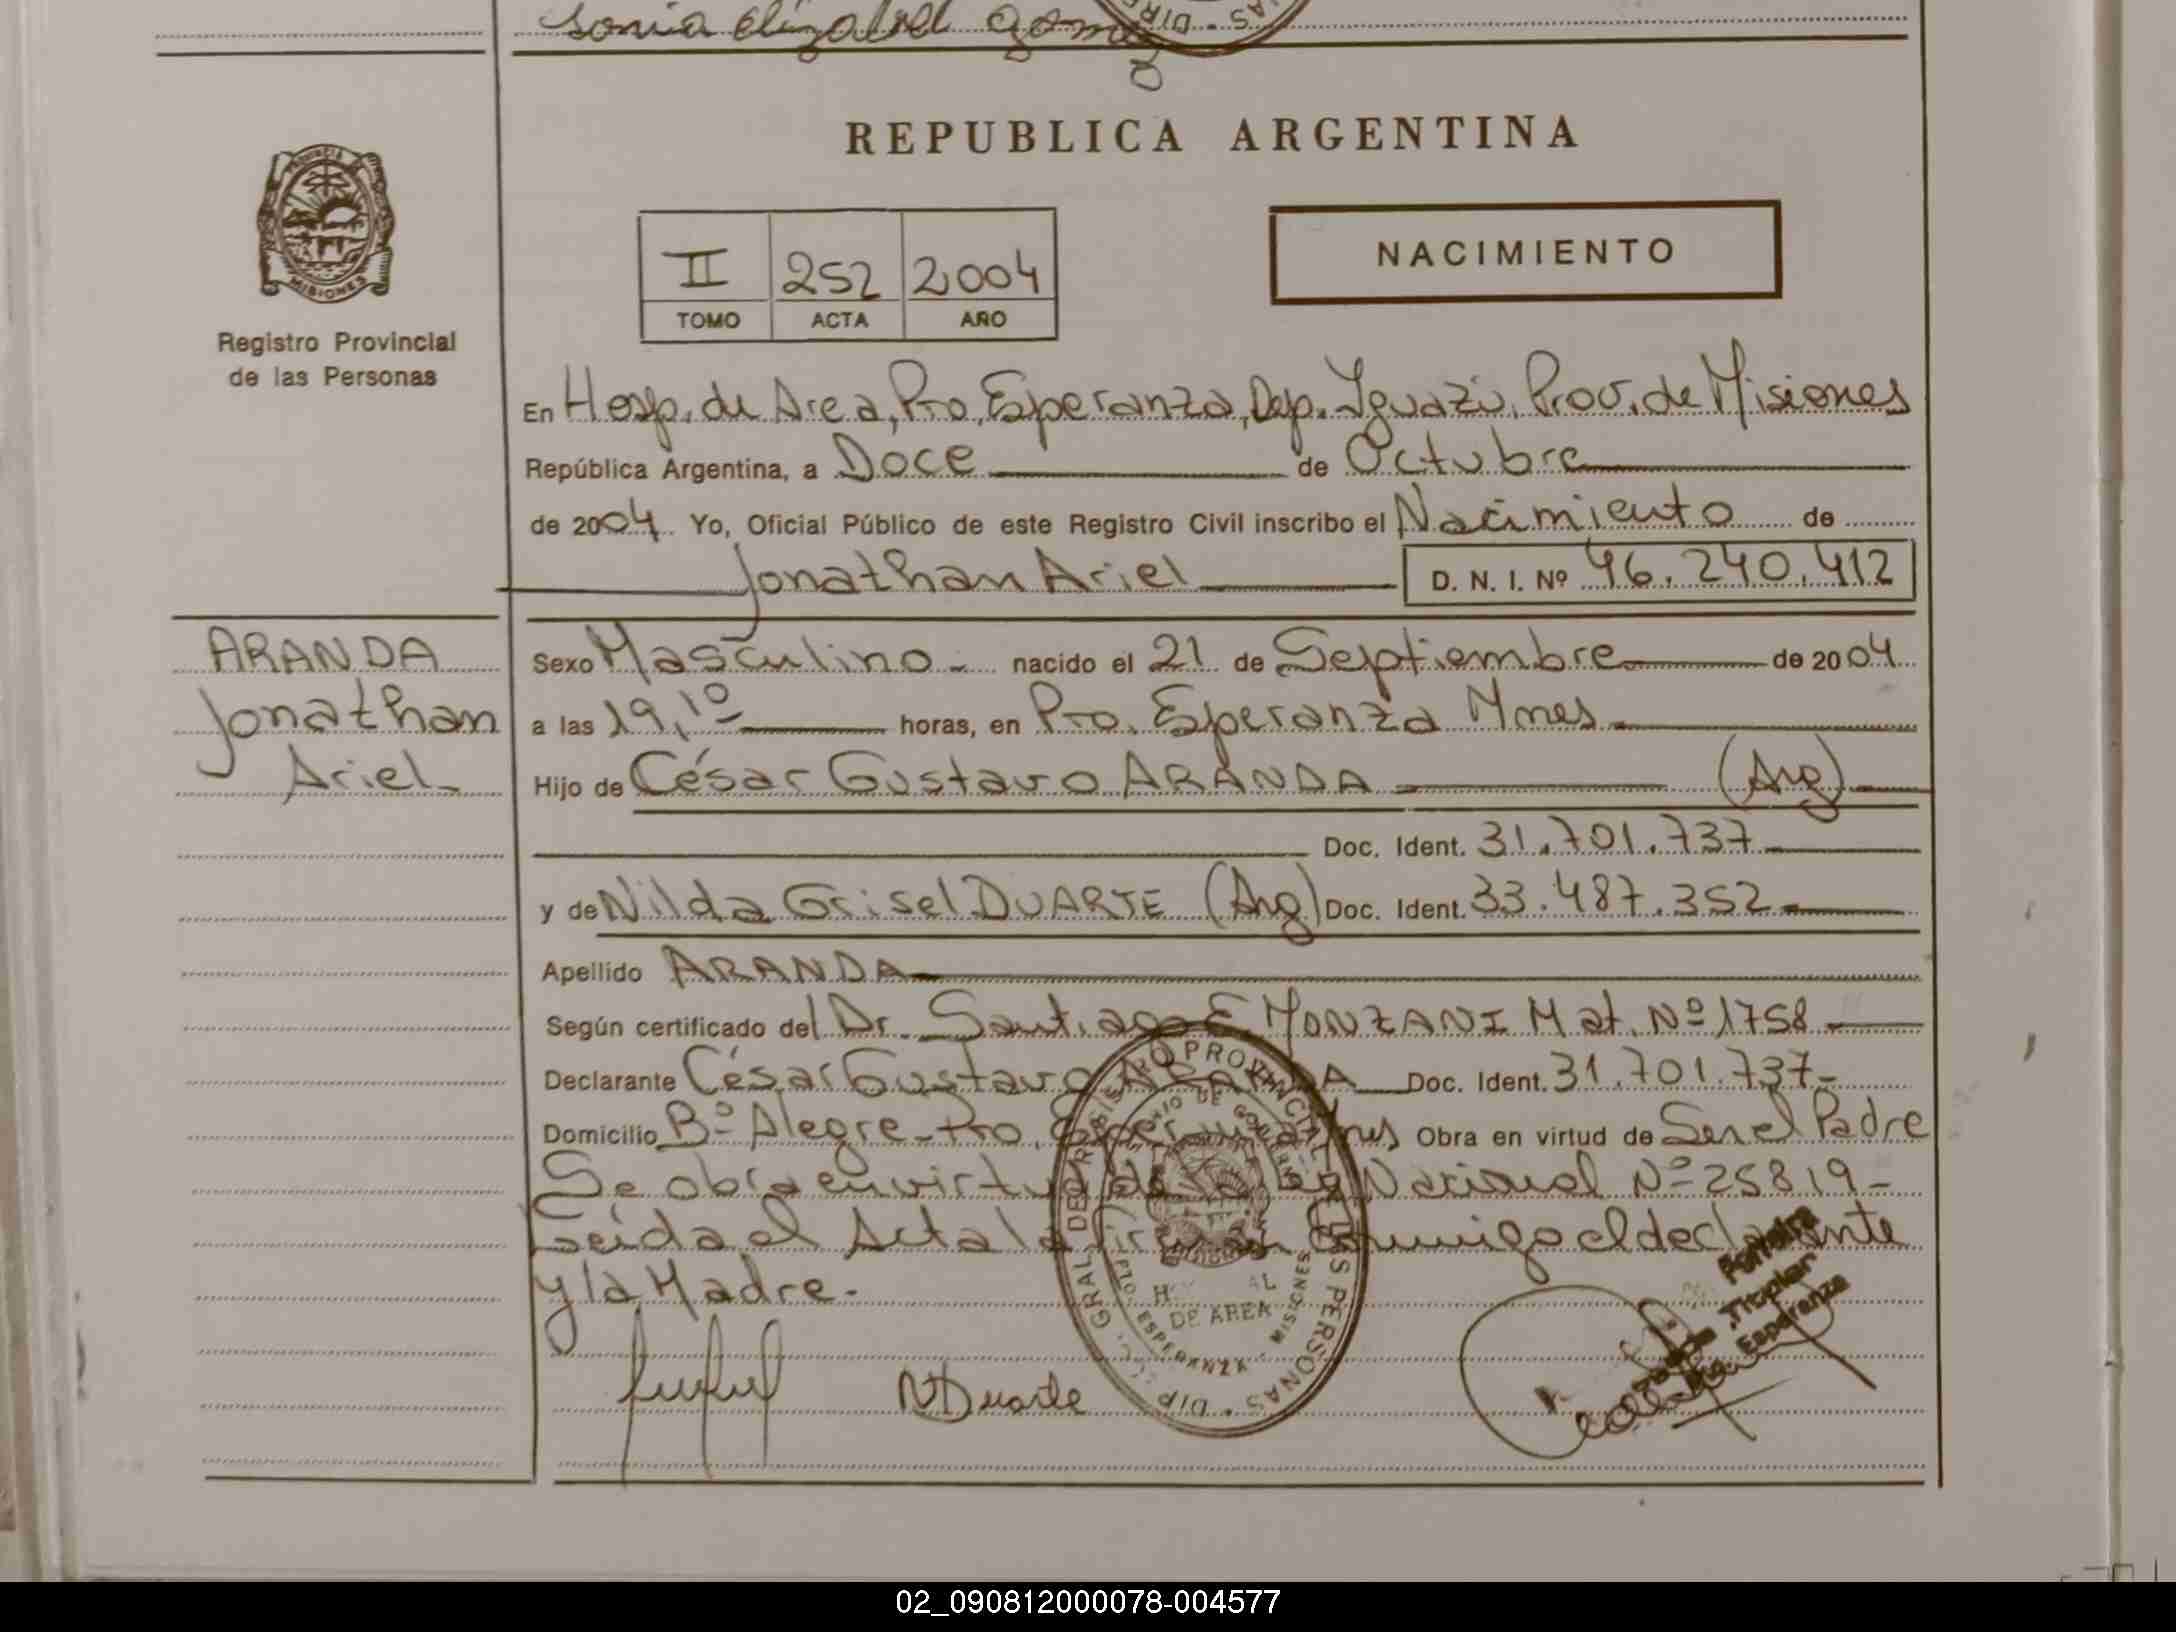 sonia elizabet gomez
REPUBLICA ARGENTINA
PROVINCIA DE
MISIONES
Registro Provincial
de las Personas
II 252 2004
TOMO ACTA AÑO
NACIMIENTO
En Hosp. de Area, Pto. Esperanza, Dep. Iguazú, Prov. de Misiones
República Argentina, a Doce de Octubre
de 2004. Yo, Oficial Público de este Registro Civil inscribo el Nacimiento de
Jonathan Ariel D. N. I. Nº 46.240.412
ARANDA
Jonathan
Ariel
Sexo Masculino.- nacido el 21 de Septiembre de 2004
a las 19,10 horas, en Pto. Esperanza Mnes
Hijo de César Gustavo ARANDA (Arg)
Doc. Ident. 31.701.737
y de Nilda Grisel DUARTE (Arg) Doc. Ident. 33.487.352
Apellido ARANDA
Según certificado del Dr. Santiago E. MONZANI Mat. Nº 1758
Declarante César Gustavo ARANDA Doc. Ident. 31.701.737-
Domicilio Bº Alegre - Pto. Esperanza Mnes Obra en virtud de Ser el Padre
Se obra en virtud de la Ley Nacional Nº 25819-
Leída el Acta la firman conmigo el declarante
y la Madre.-
NDuarte
DIR. GRAL. DEL REGISTRO PROVINCIAL DE LAS PERSONAS
DE AREA
PTO. ESPERANZA - MISIONES
Ferreira
Titular
Pto. Esperanza
02_090812000078-004577